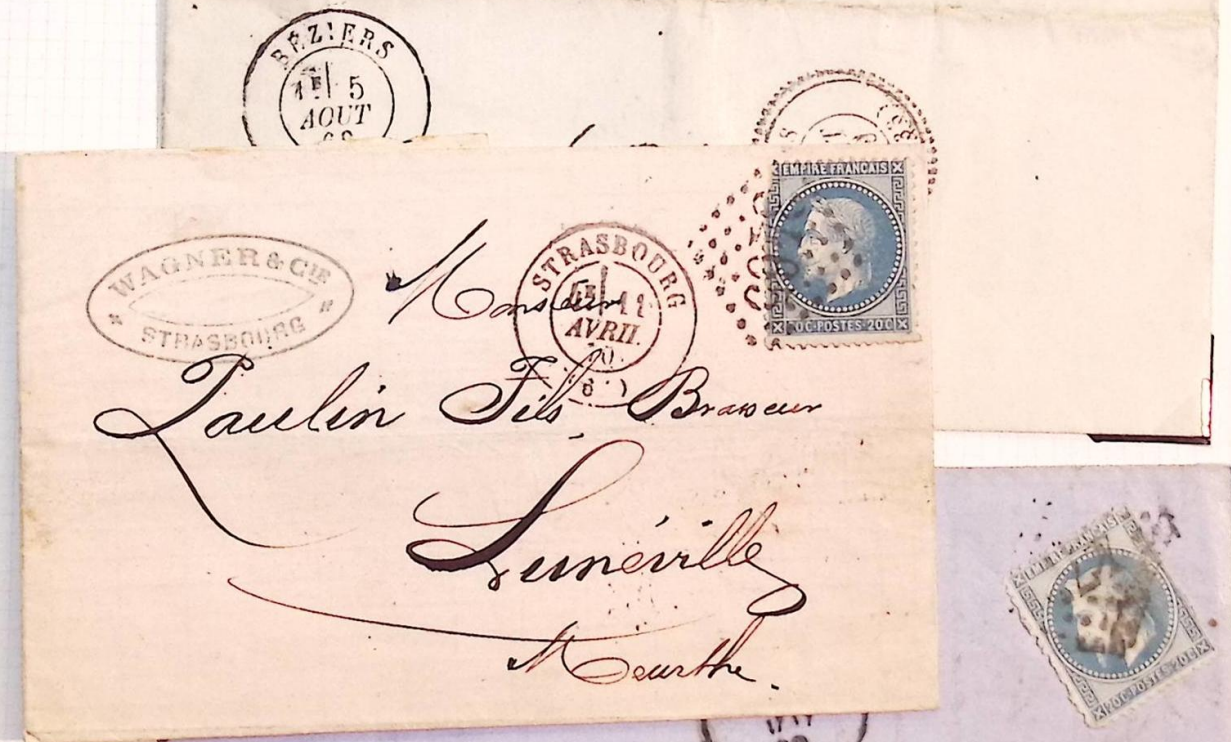 BÉZIERS
1E 5
AOUT
68
WAGNER & CIE
STRASBOURG
STRASBOURG
11
AVRIL
70
EMPIRE FRANCAIS
20C·POSTES·20C
Monsieur
Paulin Fils Brasseur
Lunéville
Meurthe.
EMPIRE FRANCAIS
20C·POSTES·20C